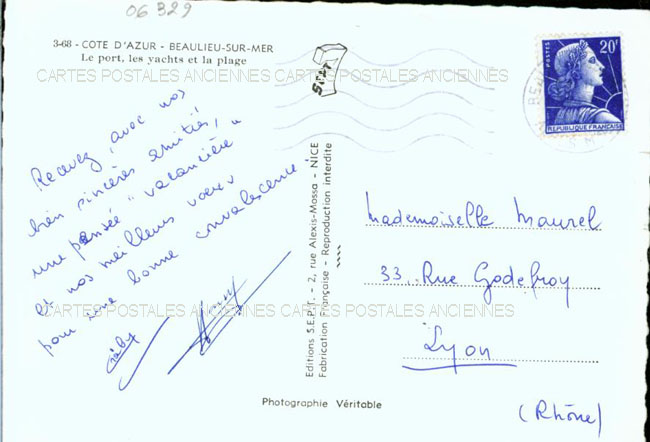 06 329
3-68 - COTE D'AZUR - BEAULIEU-SUR-MER
Le port, les yachts et la plage
CARTES POSTALES ANCIENNES CARTES POSTALES ANCIENNES
SEPT
POSTES
20F
REPUBLIQUE FRANÇAISE
Recevez, avec nos
bien sincères amitiés,
une pensée "vacancière"
et nos meilleurs voeux
pour une bonne convalescence.
Gaby
Editions S.E.P.T. - 2, rue Alexis-Mossa - NICE
Fabrication Française - Reproduction interdite
Mademoiselle Maurel
33, Rue Godefroy
Lyon
(Rhône)
CARTES POSTALES ANCIENNES CARTES POSTALES ANCIENNES
Photographie Véritable